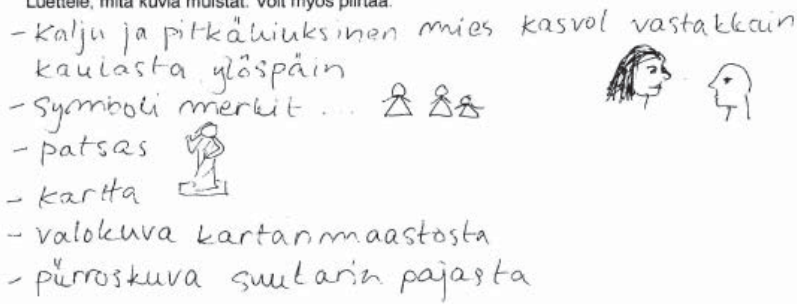 Luettele, mitä kuvia muistat. Voit myös piirtää.
- Kalju ja pitkähiuksinen mies kasvot vastakkain
kaulasta ylöspäin
- Symboli merkit ...
- patsas
- kartta
- valokuva kartanmaastosta
- piirroskuva suutarin pajasta